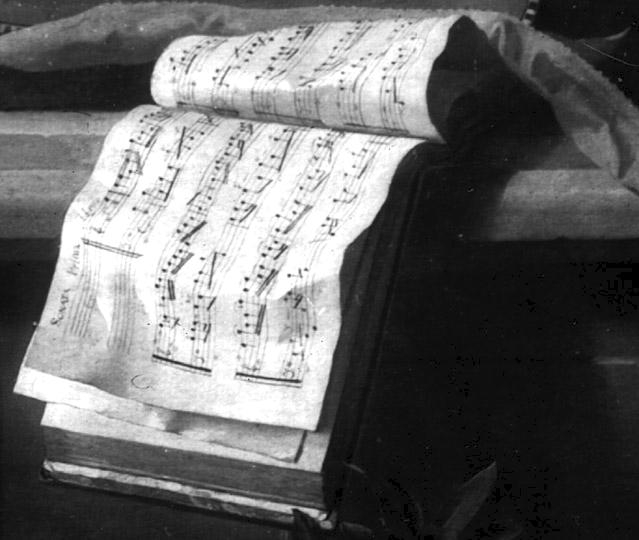 Sonata Prima